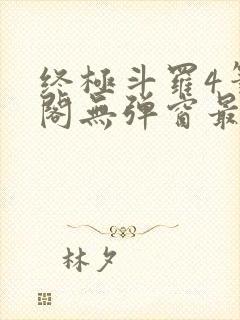 终極斗羅4
閣無弹窗最
林夕